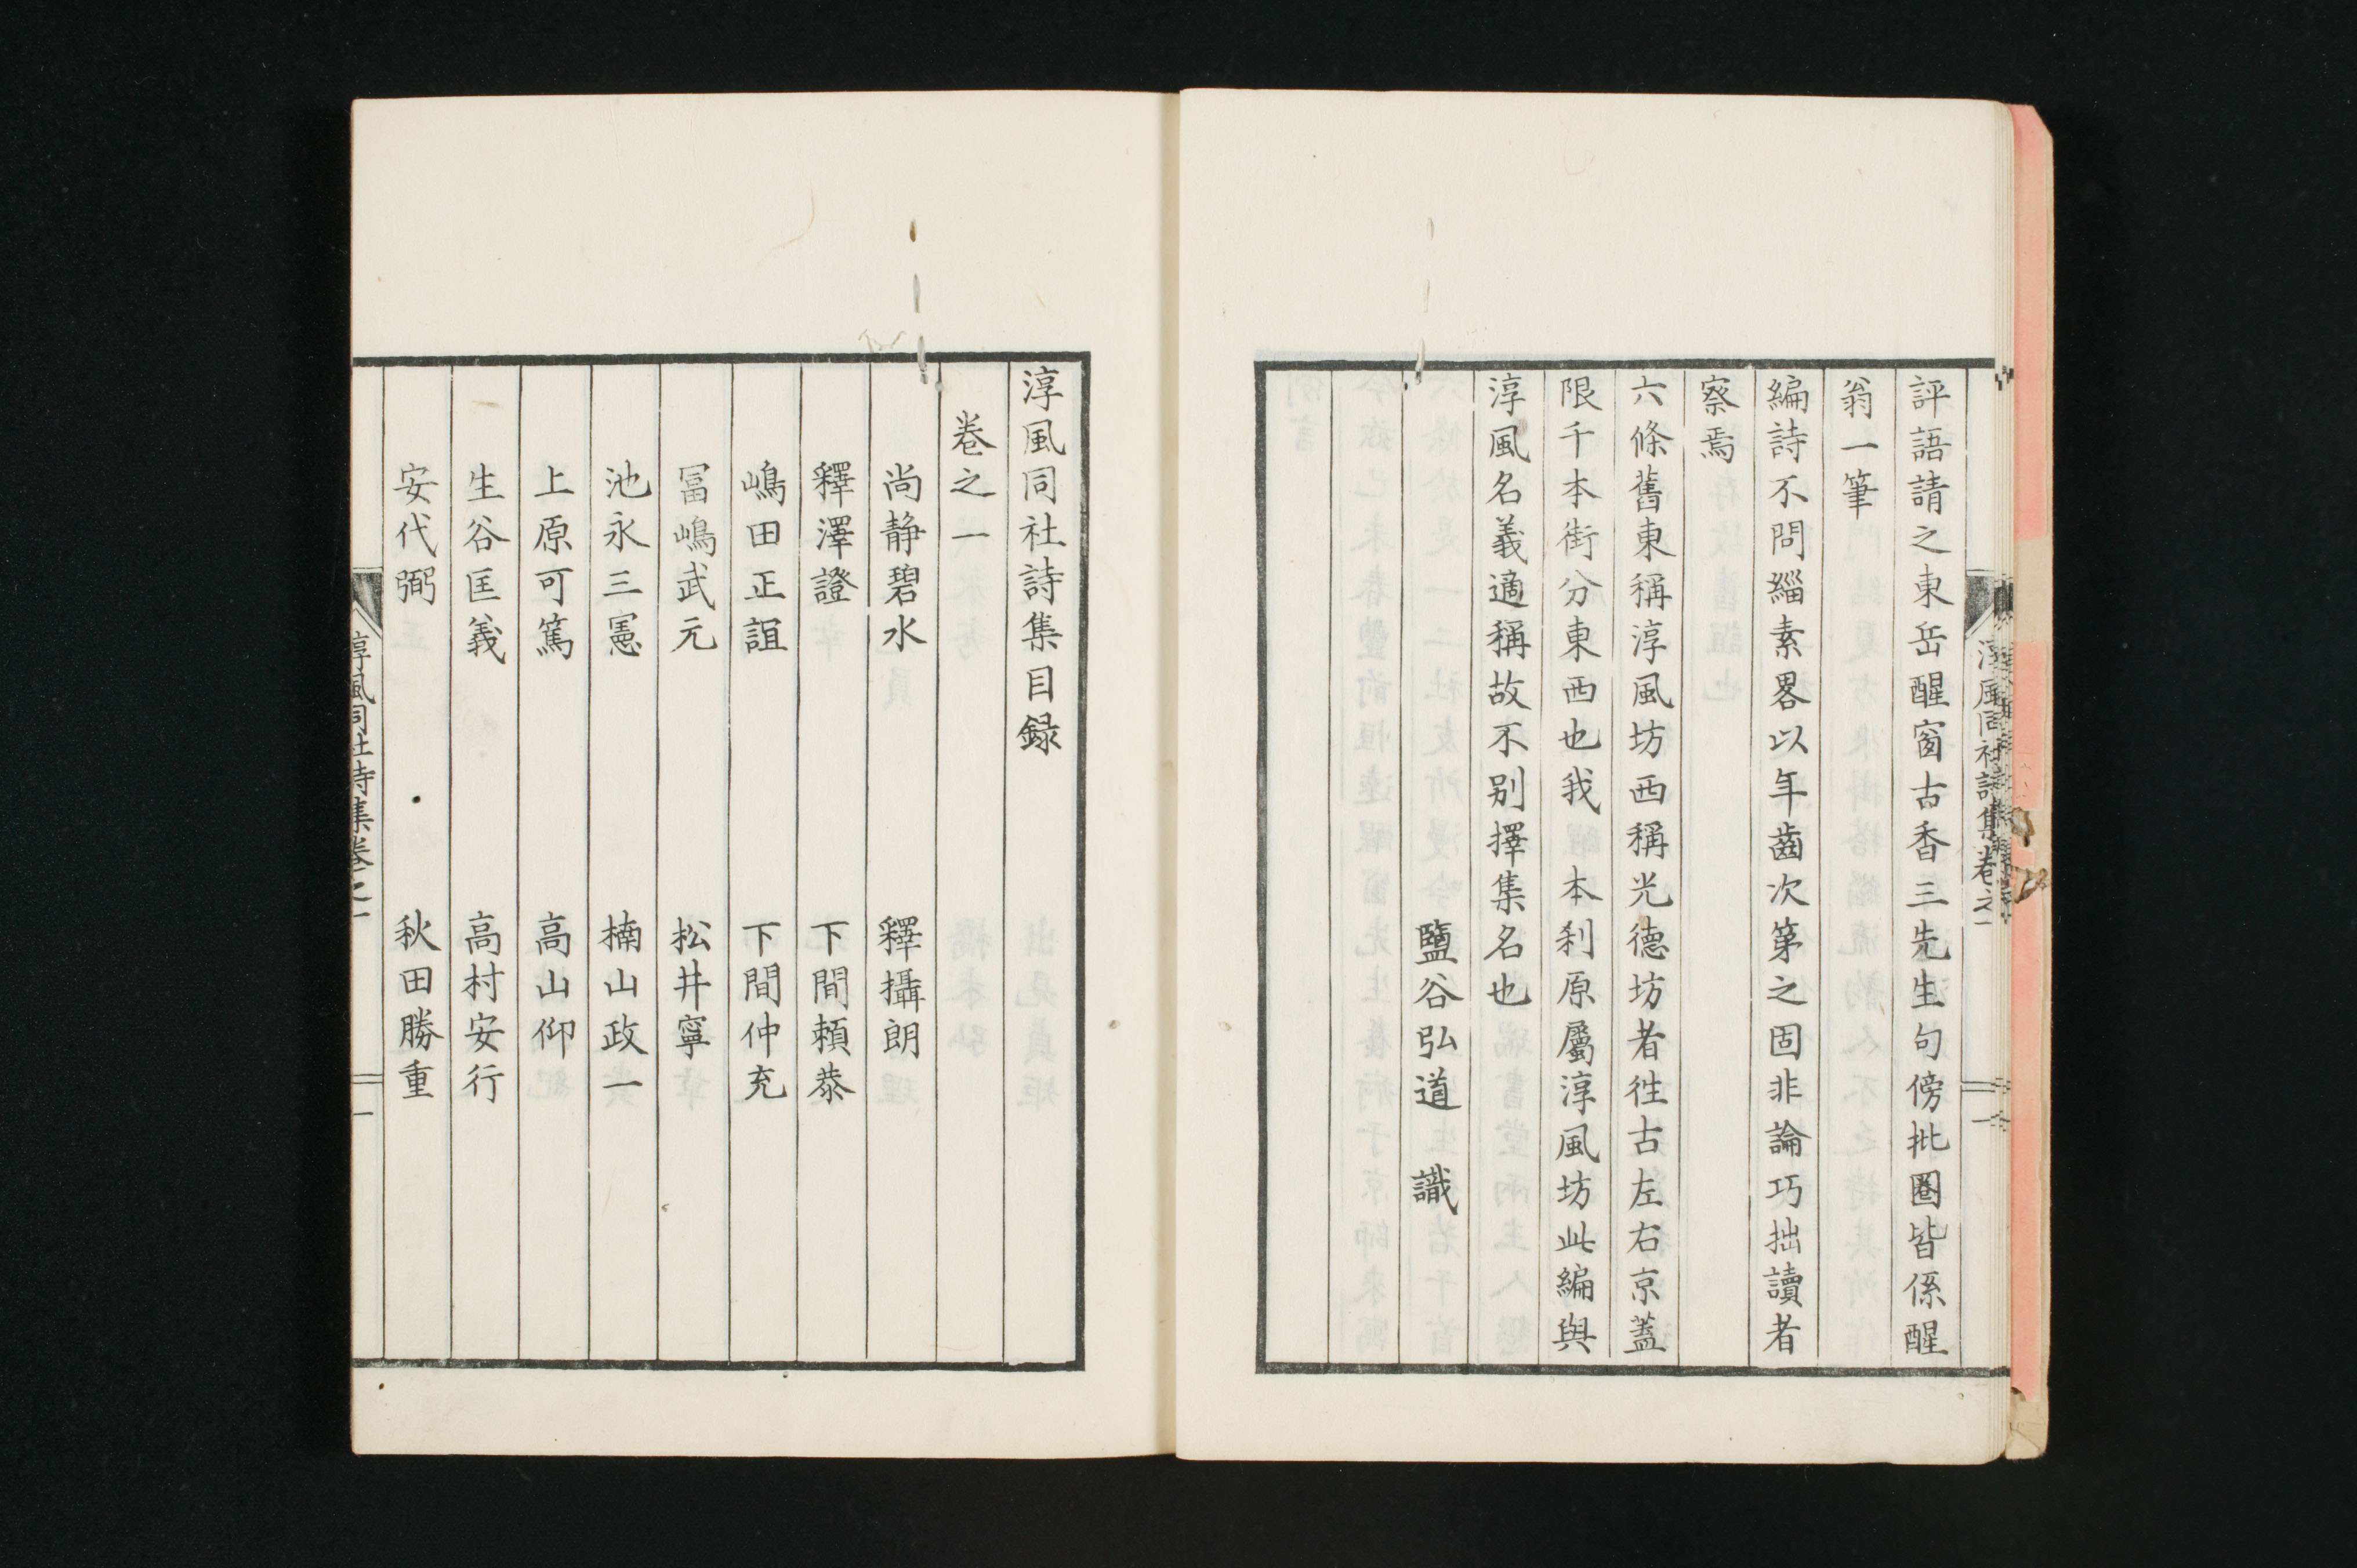 評語請之東岳醒窗古香三先生句傍批圈皆係醒
翁一筆
編詩不問緇素畧以年齒次第之固非論巧拙讀者
察焉
六條舊東稱淳風坊西稱光德坊者徃古左右京蓋
限千本街分東西也我 本刹原屬淳風坊此編與
淳風名義適稱故不别擇集名也
鹽谷弘道 識
淳風同社詩集目録
卷之一
尚静碧水 釋攝朗
釋澤證 下間頼恭
嶋田正誼 下間仲充
冨嶋武元 松井寧
池永三憲 楠山政一
上原可篤 高山仰
生谷匡義 高村安行
安代弼 秋田勝重
淳風同社詩集卷之一 一